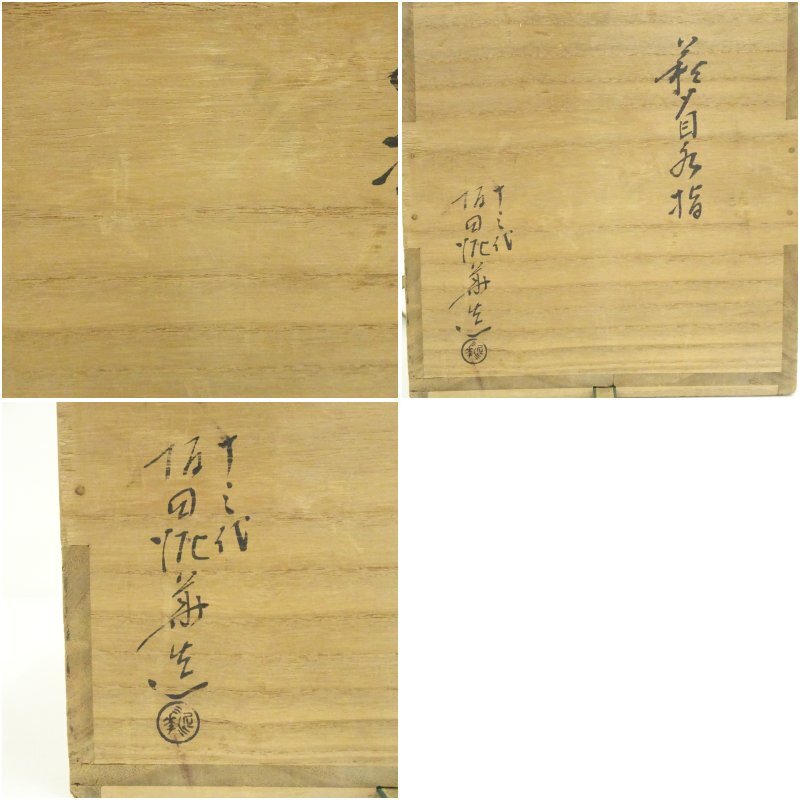 萩 目水指
十三代
坂田泥華造
十三代
坂田泥華造